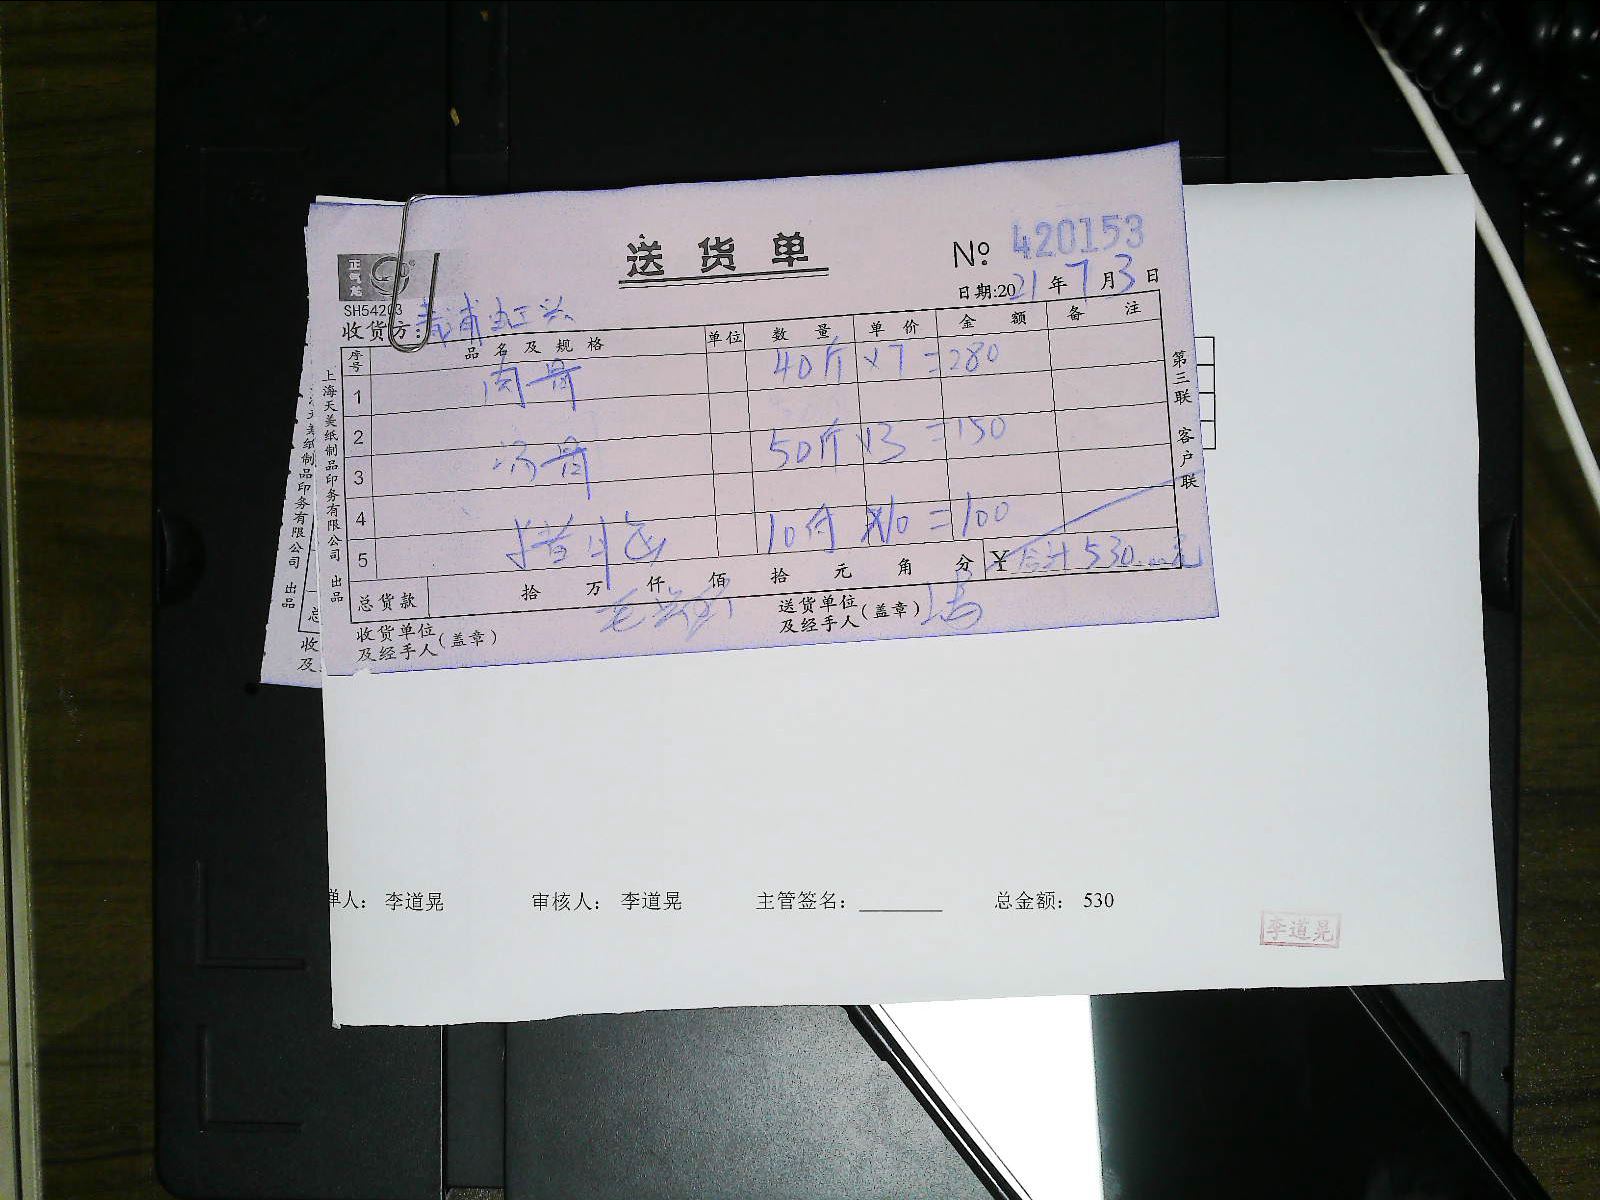 送货单
No: 420153
正气龙
SH54203
日期:2021年7月3日
收货方:
序号 品名及规格 单位 数量 单价 金额 备注
1 肉骨 40斤 ×7 =280
2
3 汤骨 50斤 ×3 =150
4
5 10付 ×10 =100
总货款 拾 万 仟 佰 拾 元 角 分 ¥合计530.--元
收货单位及经手人(盖章)
送货单位及经手人(盖章)
第三联 客户联
上海天美纸制品印务有限公司 出品
天美纸制品印务有限公司 出品
总
收
及
单人: 李道晃 审核人: 李道晃 主管签名: 总金额: 530
李道晃